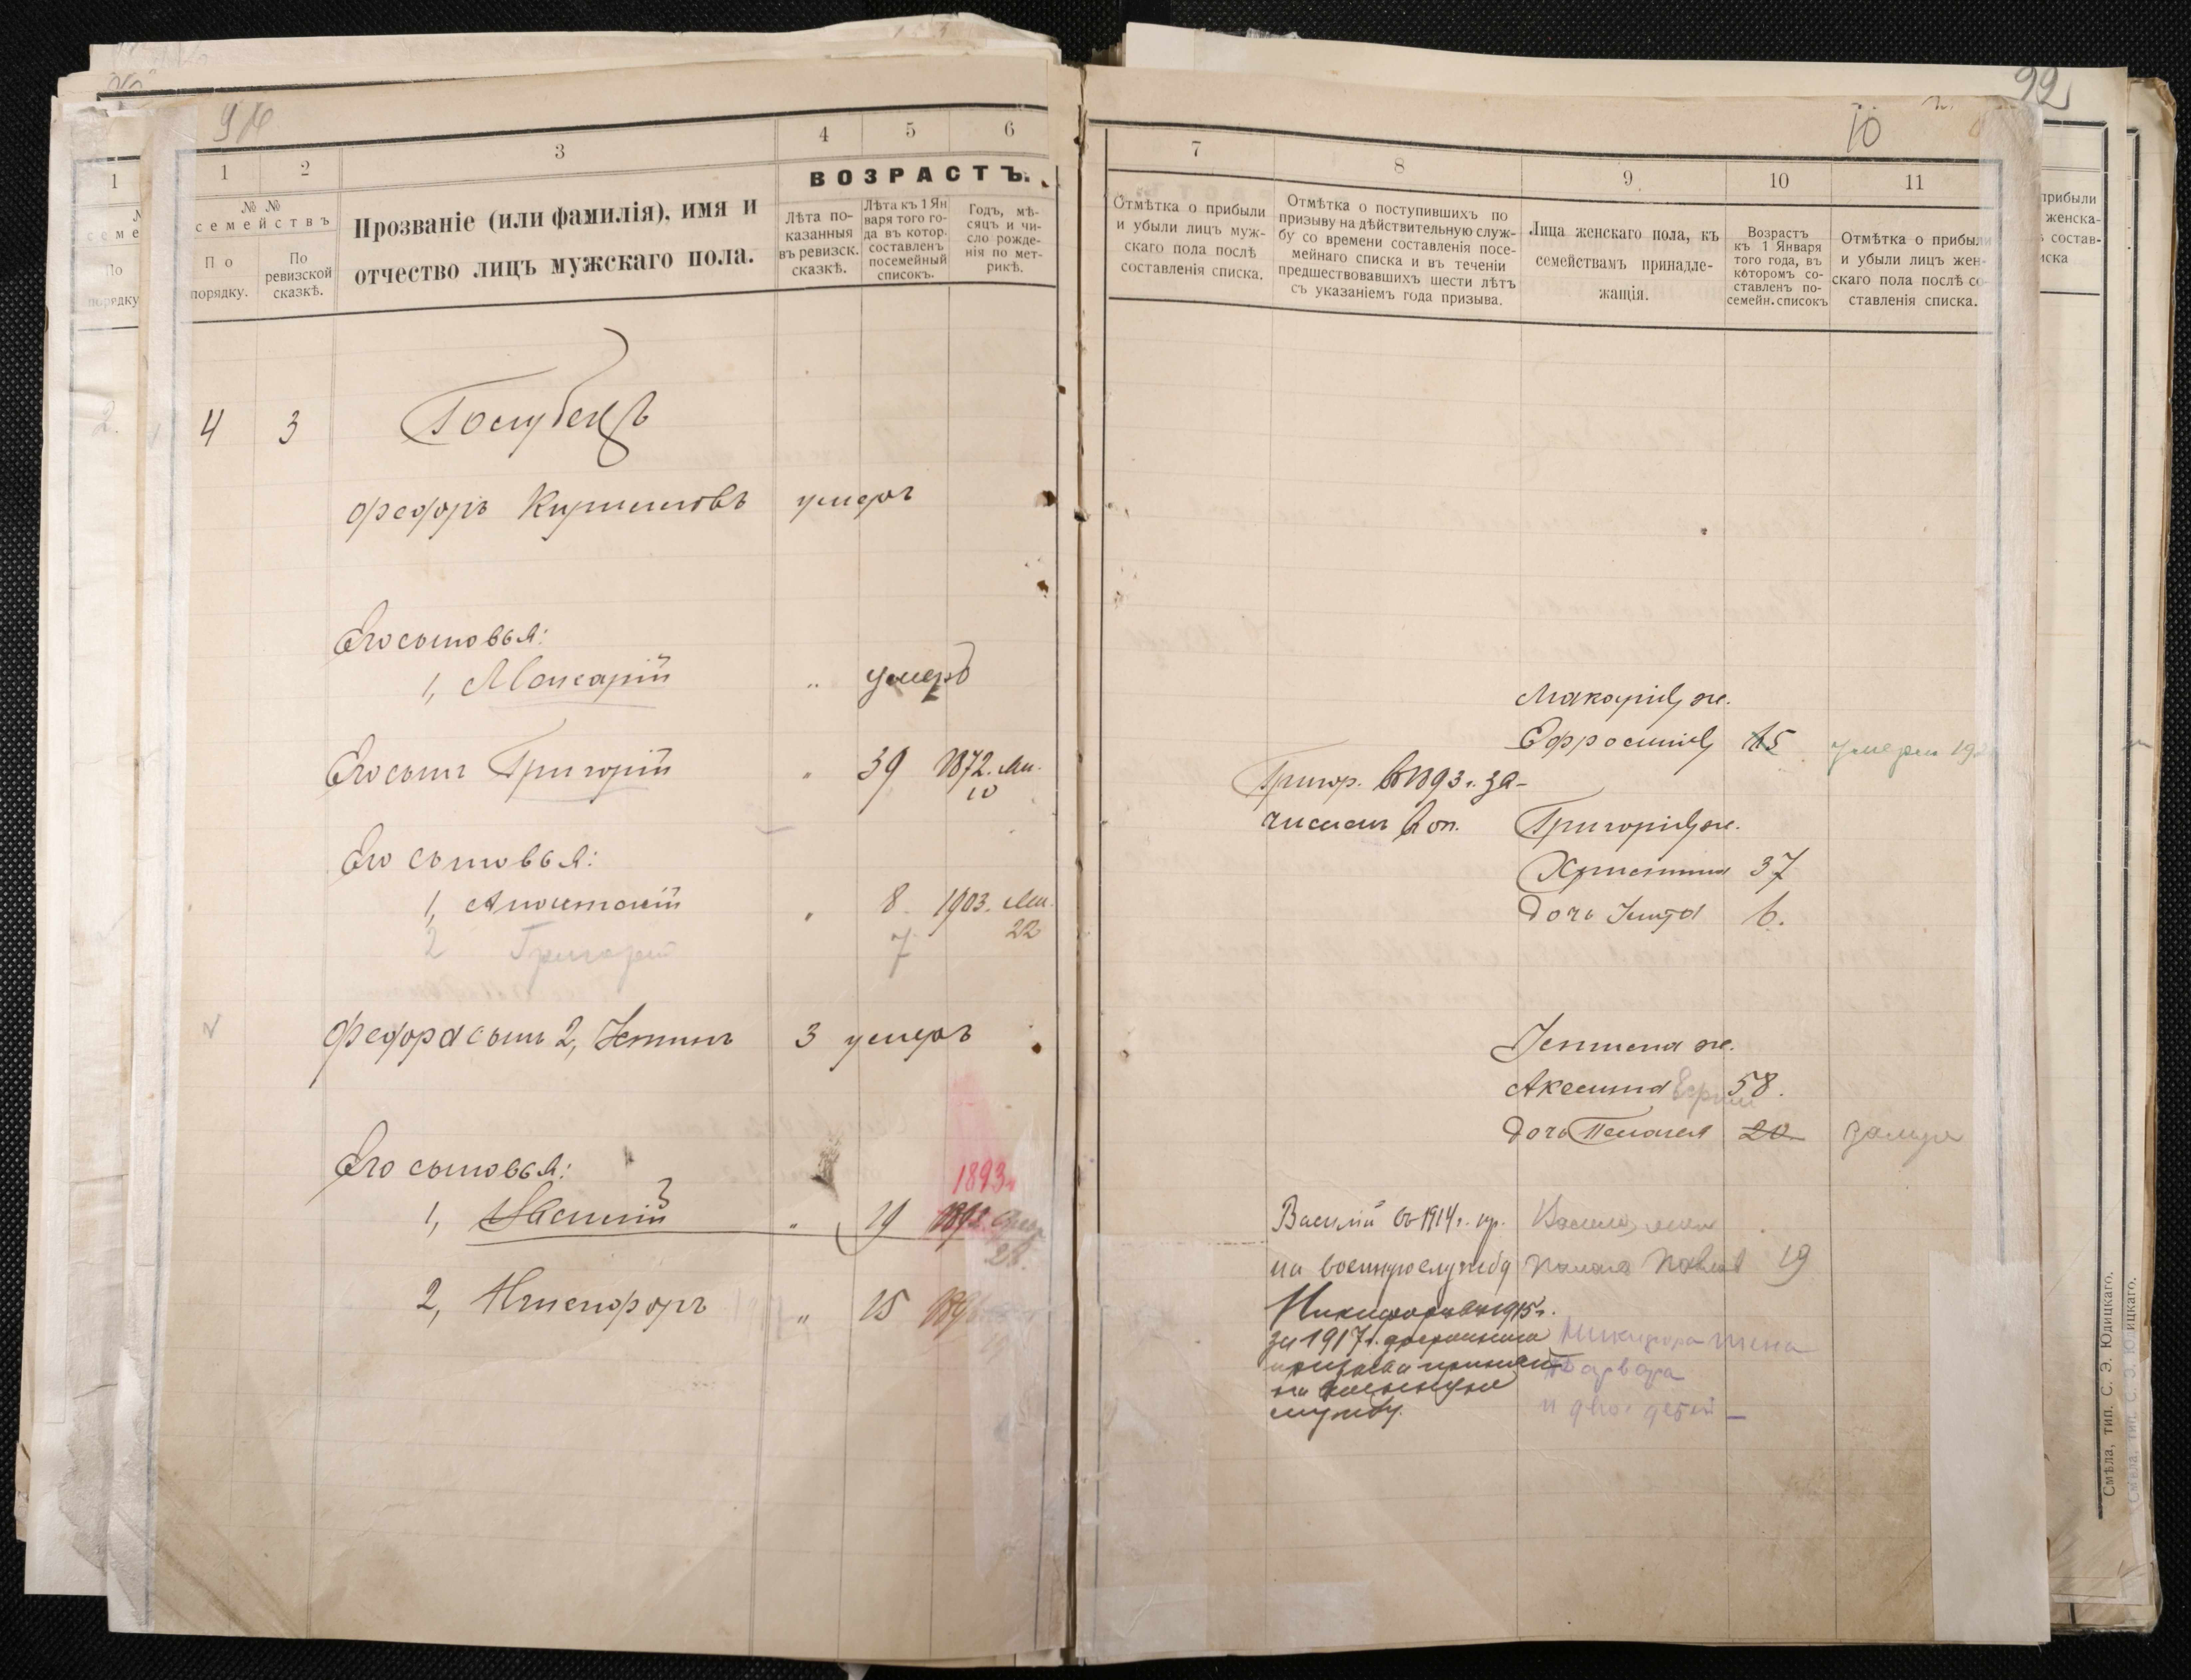 94
1 2 3 4 5 6
ВОЗРАСТЪ.
№ №
семействъ
По
порядку.
По
ревизской
сказкѣ.
Прозваніе (или фамилія), имя и
отчество лицъ мужскаго пола.
Лѣта по-
казанныя
въ ревизск.
сказкѣ.
Лѣта къ 1 Ян
варя того го-
да въ котор.
составленъ
посемейный
списокъ.
Годъ, мѣ-
сяцъ и чи-
сло рожде-
нія по мет-
рикѣ.
4 3 Голубецъ
Федоръ Кириловъ умеръ
Его сыновья:
1, Макарій " умеръ
Его сынъ Григорій " 39 1872. Ян.
10
Его сыновья:
1, Анатолій " 8 1903. Ян.
22
2 Григорій 7
Федора сынъ 2, Устинъ 3 умеръ
Его сыновья:
1893
1, Василій " 19
28.
2, Никифоръ " 15
92
10
7 8 9 10 11
Отмѣтка о прибыли
и убыли лицъ муж-
скаго пола послѣ
составленія списка.
Отмѣтка о поступившихъ по
призыву на дѣйствительную служ-
бу со времени составленія посе-
мейнаго списка и въ теченіи
предшествовавшихъ шести лѣтъ
съ указаніемъ года призыва.
Лица женскаго пола, къ
семействамъ принадле-
жащія.
Возрастъ
къ 1 Января
того года, въ
которомъ со-
ставленъ по-
семейн. списокъ
Отмѣтка о прибыли
и убыли лицъ жен-
скаго пола послѣ со-
ставленія списка.
Макарія ж.
Ефросинія умерла
Григор. въ 1893 г. за-
численъ въ оп. Григорія ж.
Христина 37
дочь 6.
Устина ж.
Аксинія 58.
дочь Пелагея 20 замуж
Василій въ 1914 г. пр. Василія жена
на военную службу 19
Никифоръ въ 1915 г.
за 1917 г. досрочнаго Никифора жена
призыва принятъ Варвара
на военную
службу. и двое детей
Смѣла, тип. С. Э. Юдицкаго.